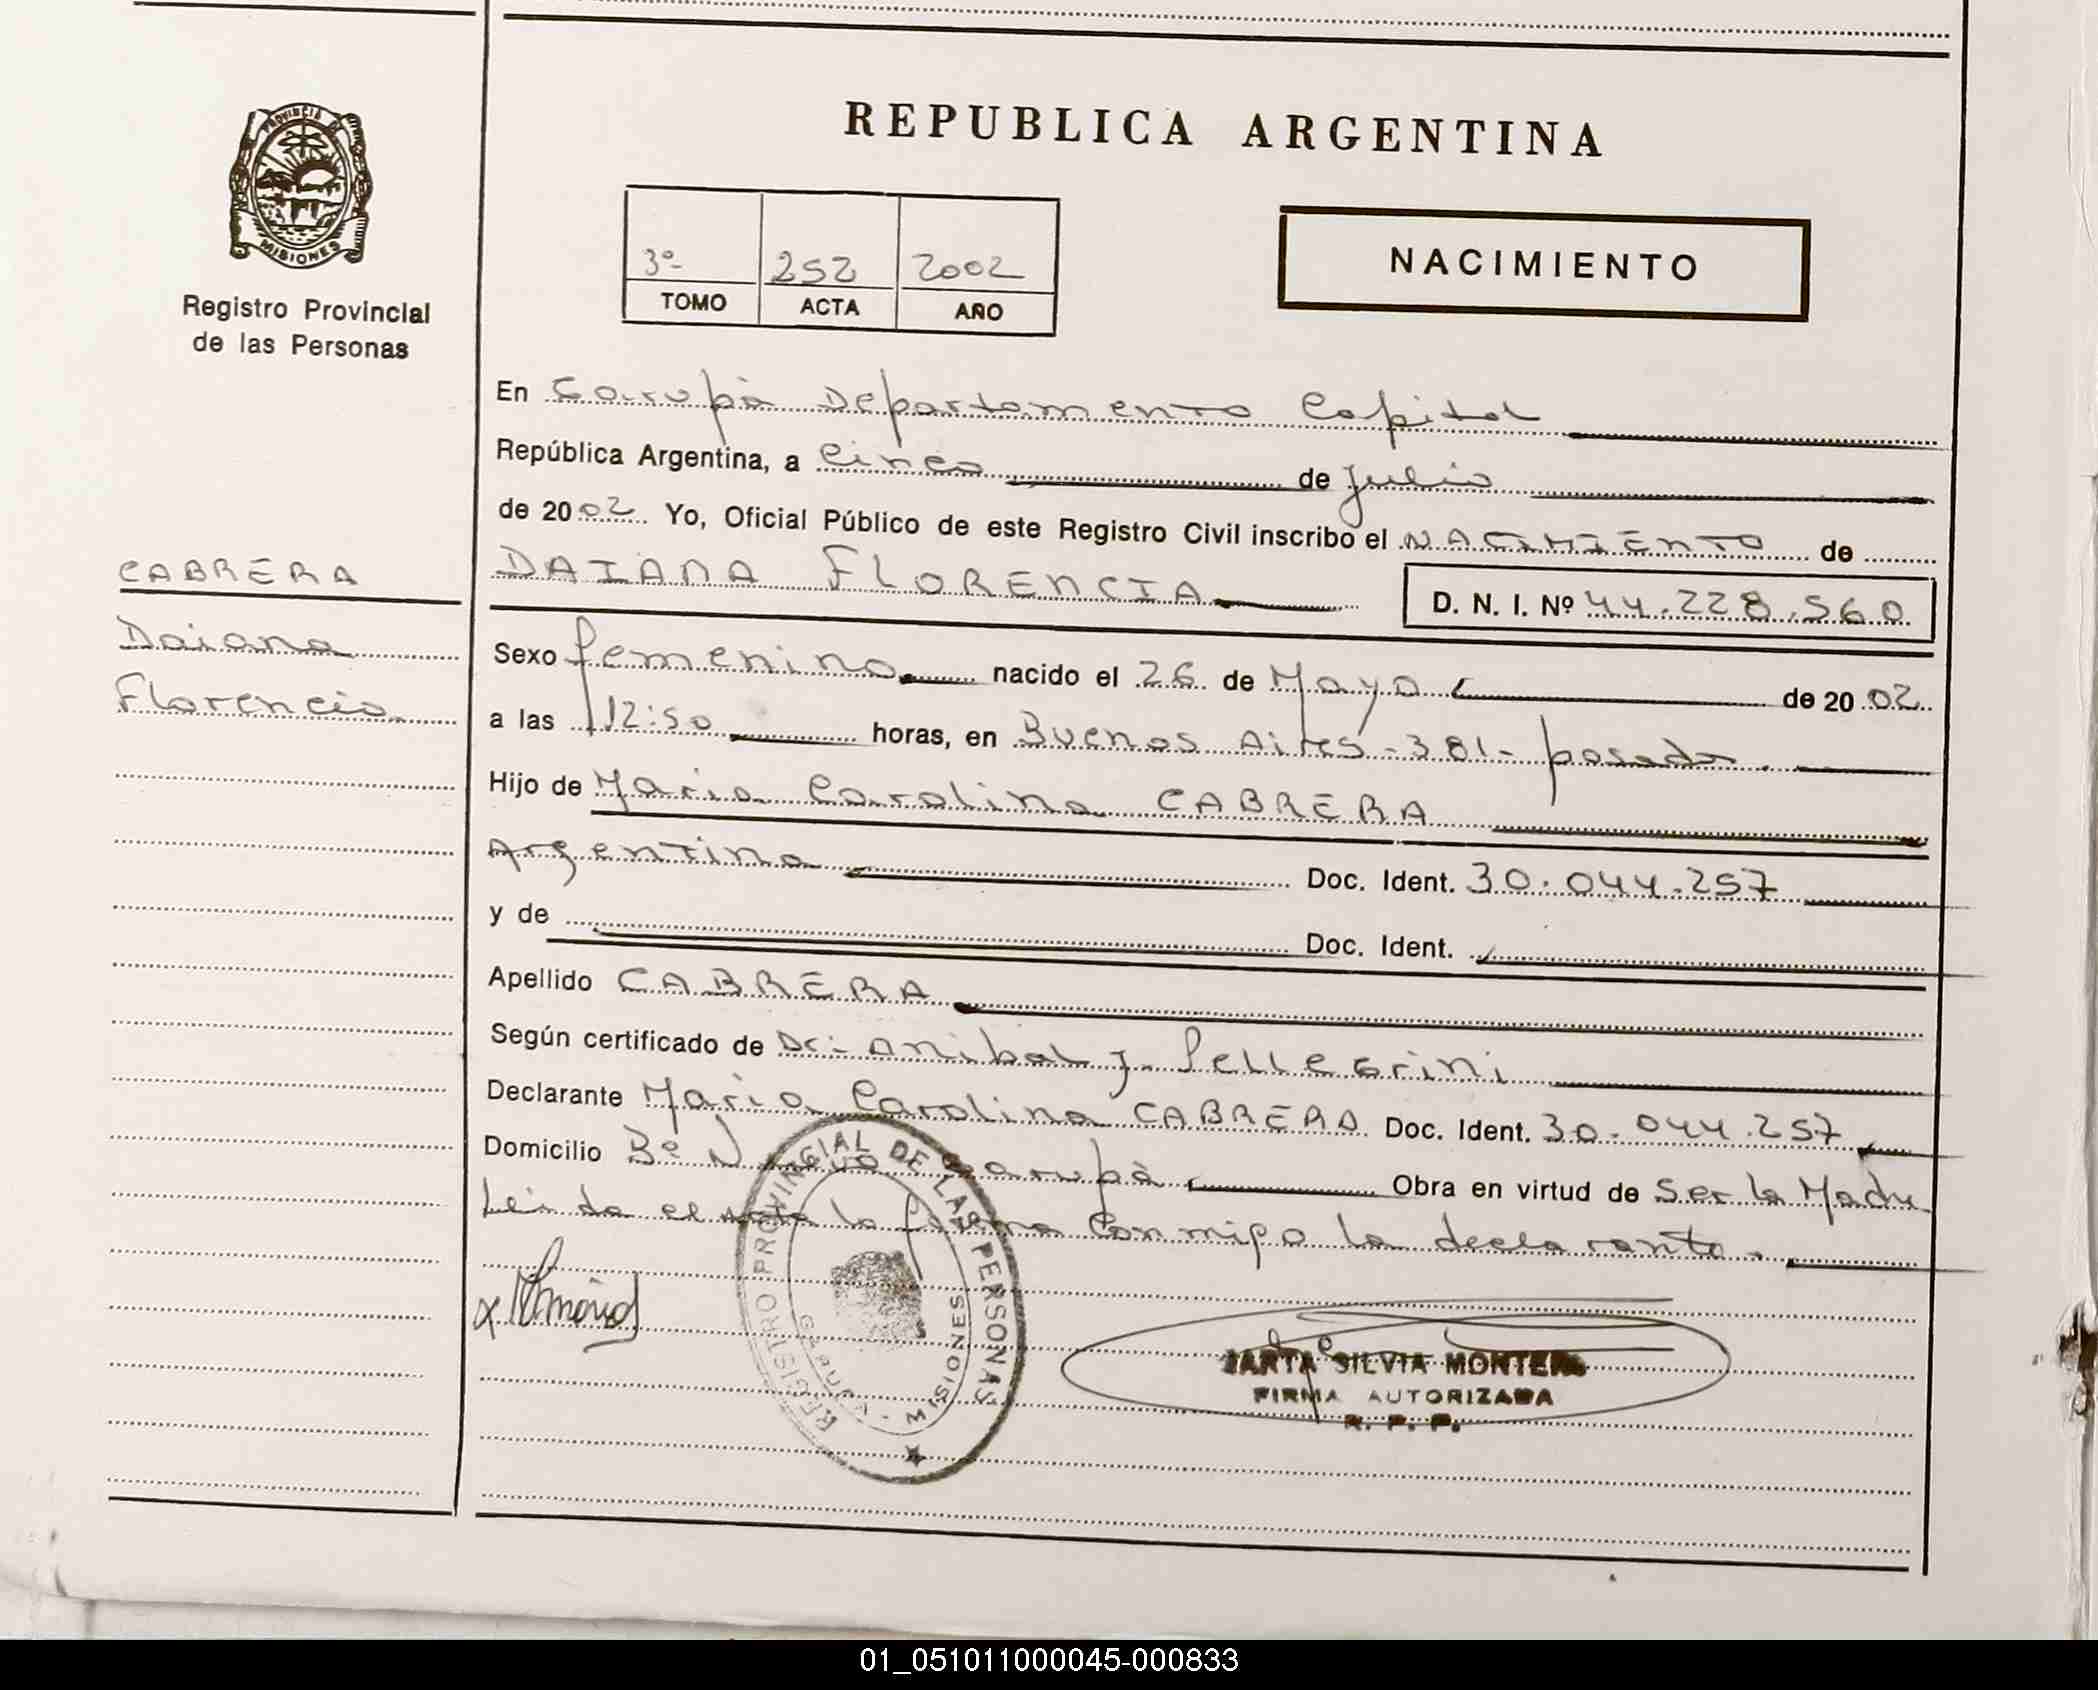 REPUBLICA ARGENTINA
PROVINCIA DE
MISIONES
Registro Provincial
de las Personas
3º 252 2002
TOMO ACTA AÑO
NACIMIENTO
En Garupá Departamento Capital
República Argentina, a Cinco de Julio
de 2002 Yo, Oficial Público de este Registro Civil inscribo el NACIMIENTO de
DAIANA FLORENCIA D. N. I. Nº 44.228.560
CABRERA
Daiana
Florencia
Sexo femenino nacido el 26 de Mayo de 2002
a las 12:50 horas, en Buenos Aires -381- posadas
Hijo de Maria Carolina CABRERA
Argentina Doc. Ident. 30.044.257
y de Doc. Ident.
Apellido CABRERA
Según certificado de Dr. Anibal J. Pellegrini
Declarante Maria Carolina CABRERA Doc. Ident. 30.044.257
Domicilio Bº Nuevo Garupá Obra en virtud de Ser la Madre
Leida el acta la firma conmigo la declarante.
REGISTRO PROVINCIAL DE LAS PERSONAS
GARUPA - MISIONES
MARTA SILVIA MONTERO
FIRMA AUTORIZADA
R. P. P.
01_051011000045-000833